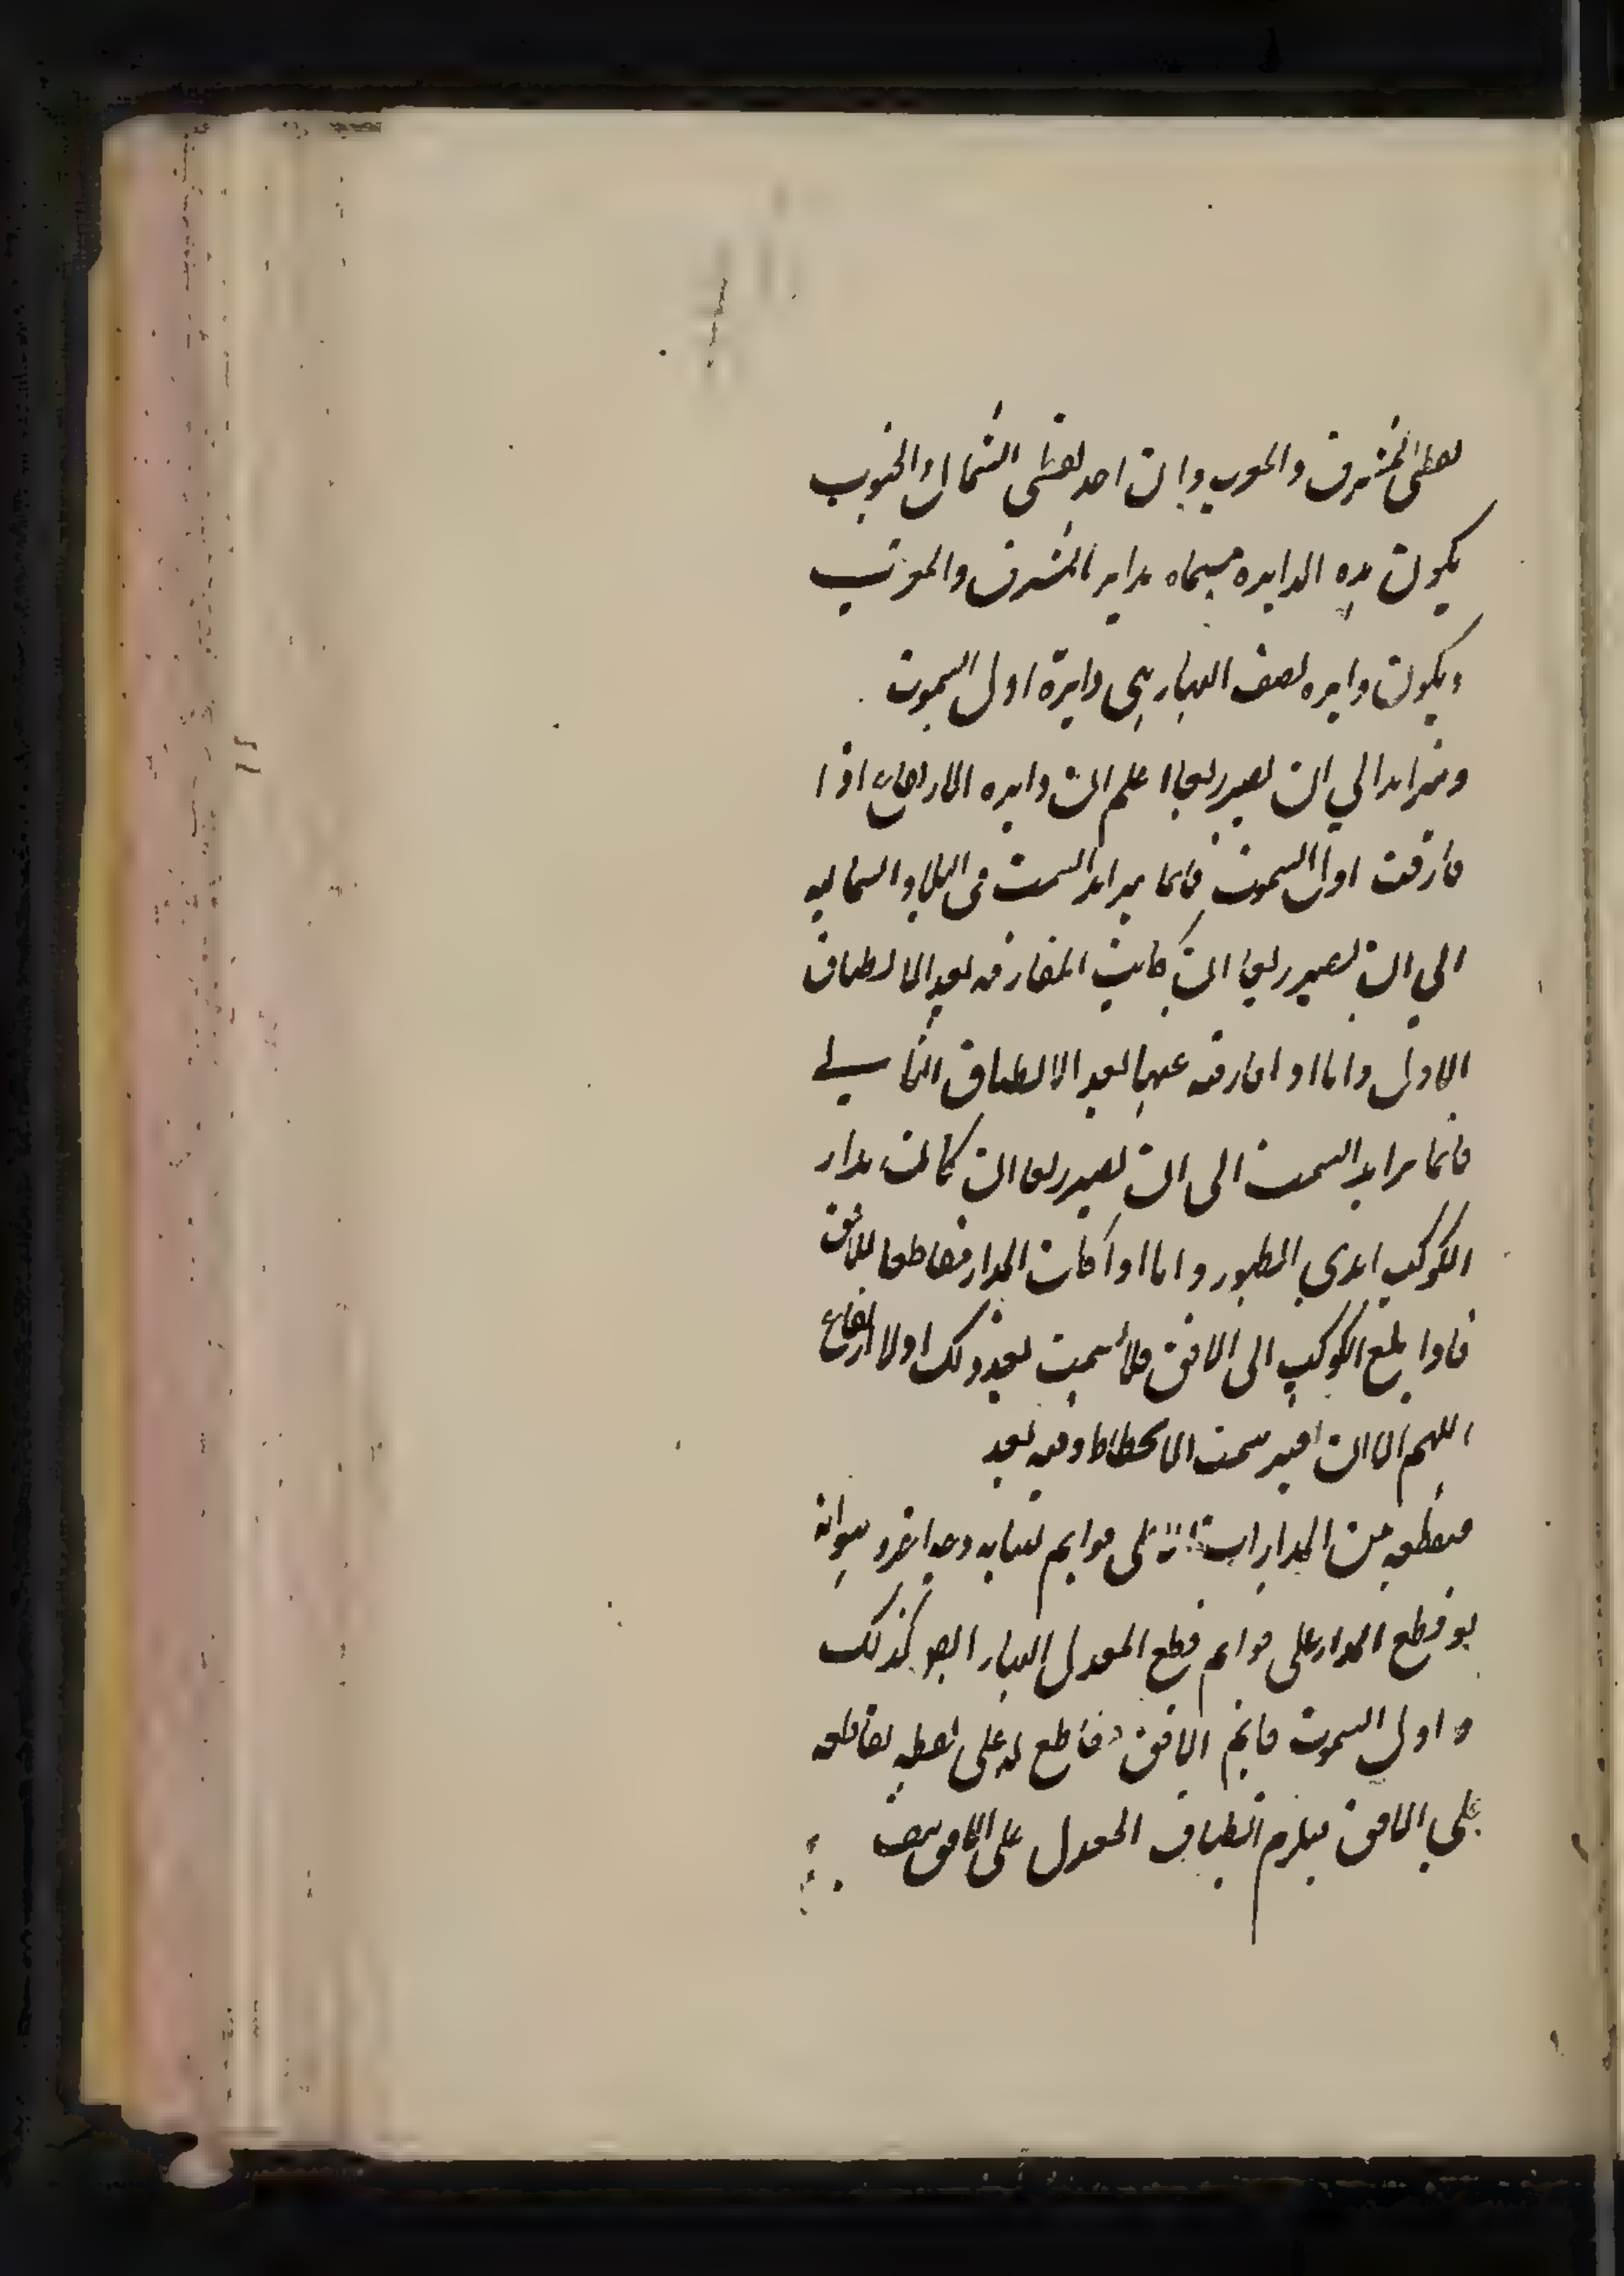 نقطتي المشرق والمغرب وان احد نقطتي الشمال والجنوب
يكون هذه الدايره مسماه بدايرة المشرق والمغرب
ويكون دايره نصف النهار هي دايرة اول السموت
ويتزايد الي ان يصير ربعا اعلم ان دايره الارتفاع اذا
فارقت اول السموت فانما يتزايد السمت في البلاد الشماليه
الي ان يصير ربعا ان كانت المفارقه بعد الانطباق
الاول واما اذا فارقته عنها بعد الانطباق الثاني
فانما يتزايد السمت الى ان يصير ربعا ان كان مدار
الكوكب ابدي الظهور واما اذا كان المدار مقاطعا للافق
فاذا بلغ الكوكب الى الافق فلا سمت بعد ذلك اولا ارتفاع
اللهم الا ان اعتبر سمت الانحطاط وفيه بعد
منقطعه من المدارات على قوايم وجه اخر هوانه
لو قطع المدار على قوايم قطع المعدل النهار ايضا كذلك
و اول السموت قايم الافق قاطع له على نقطه تقاطعه
على الافق فيلزم انطباق المعدل على الافق هف